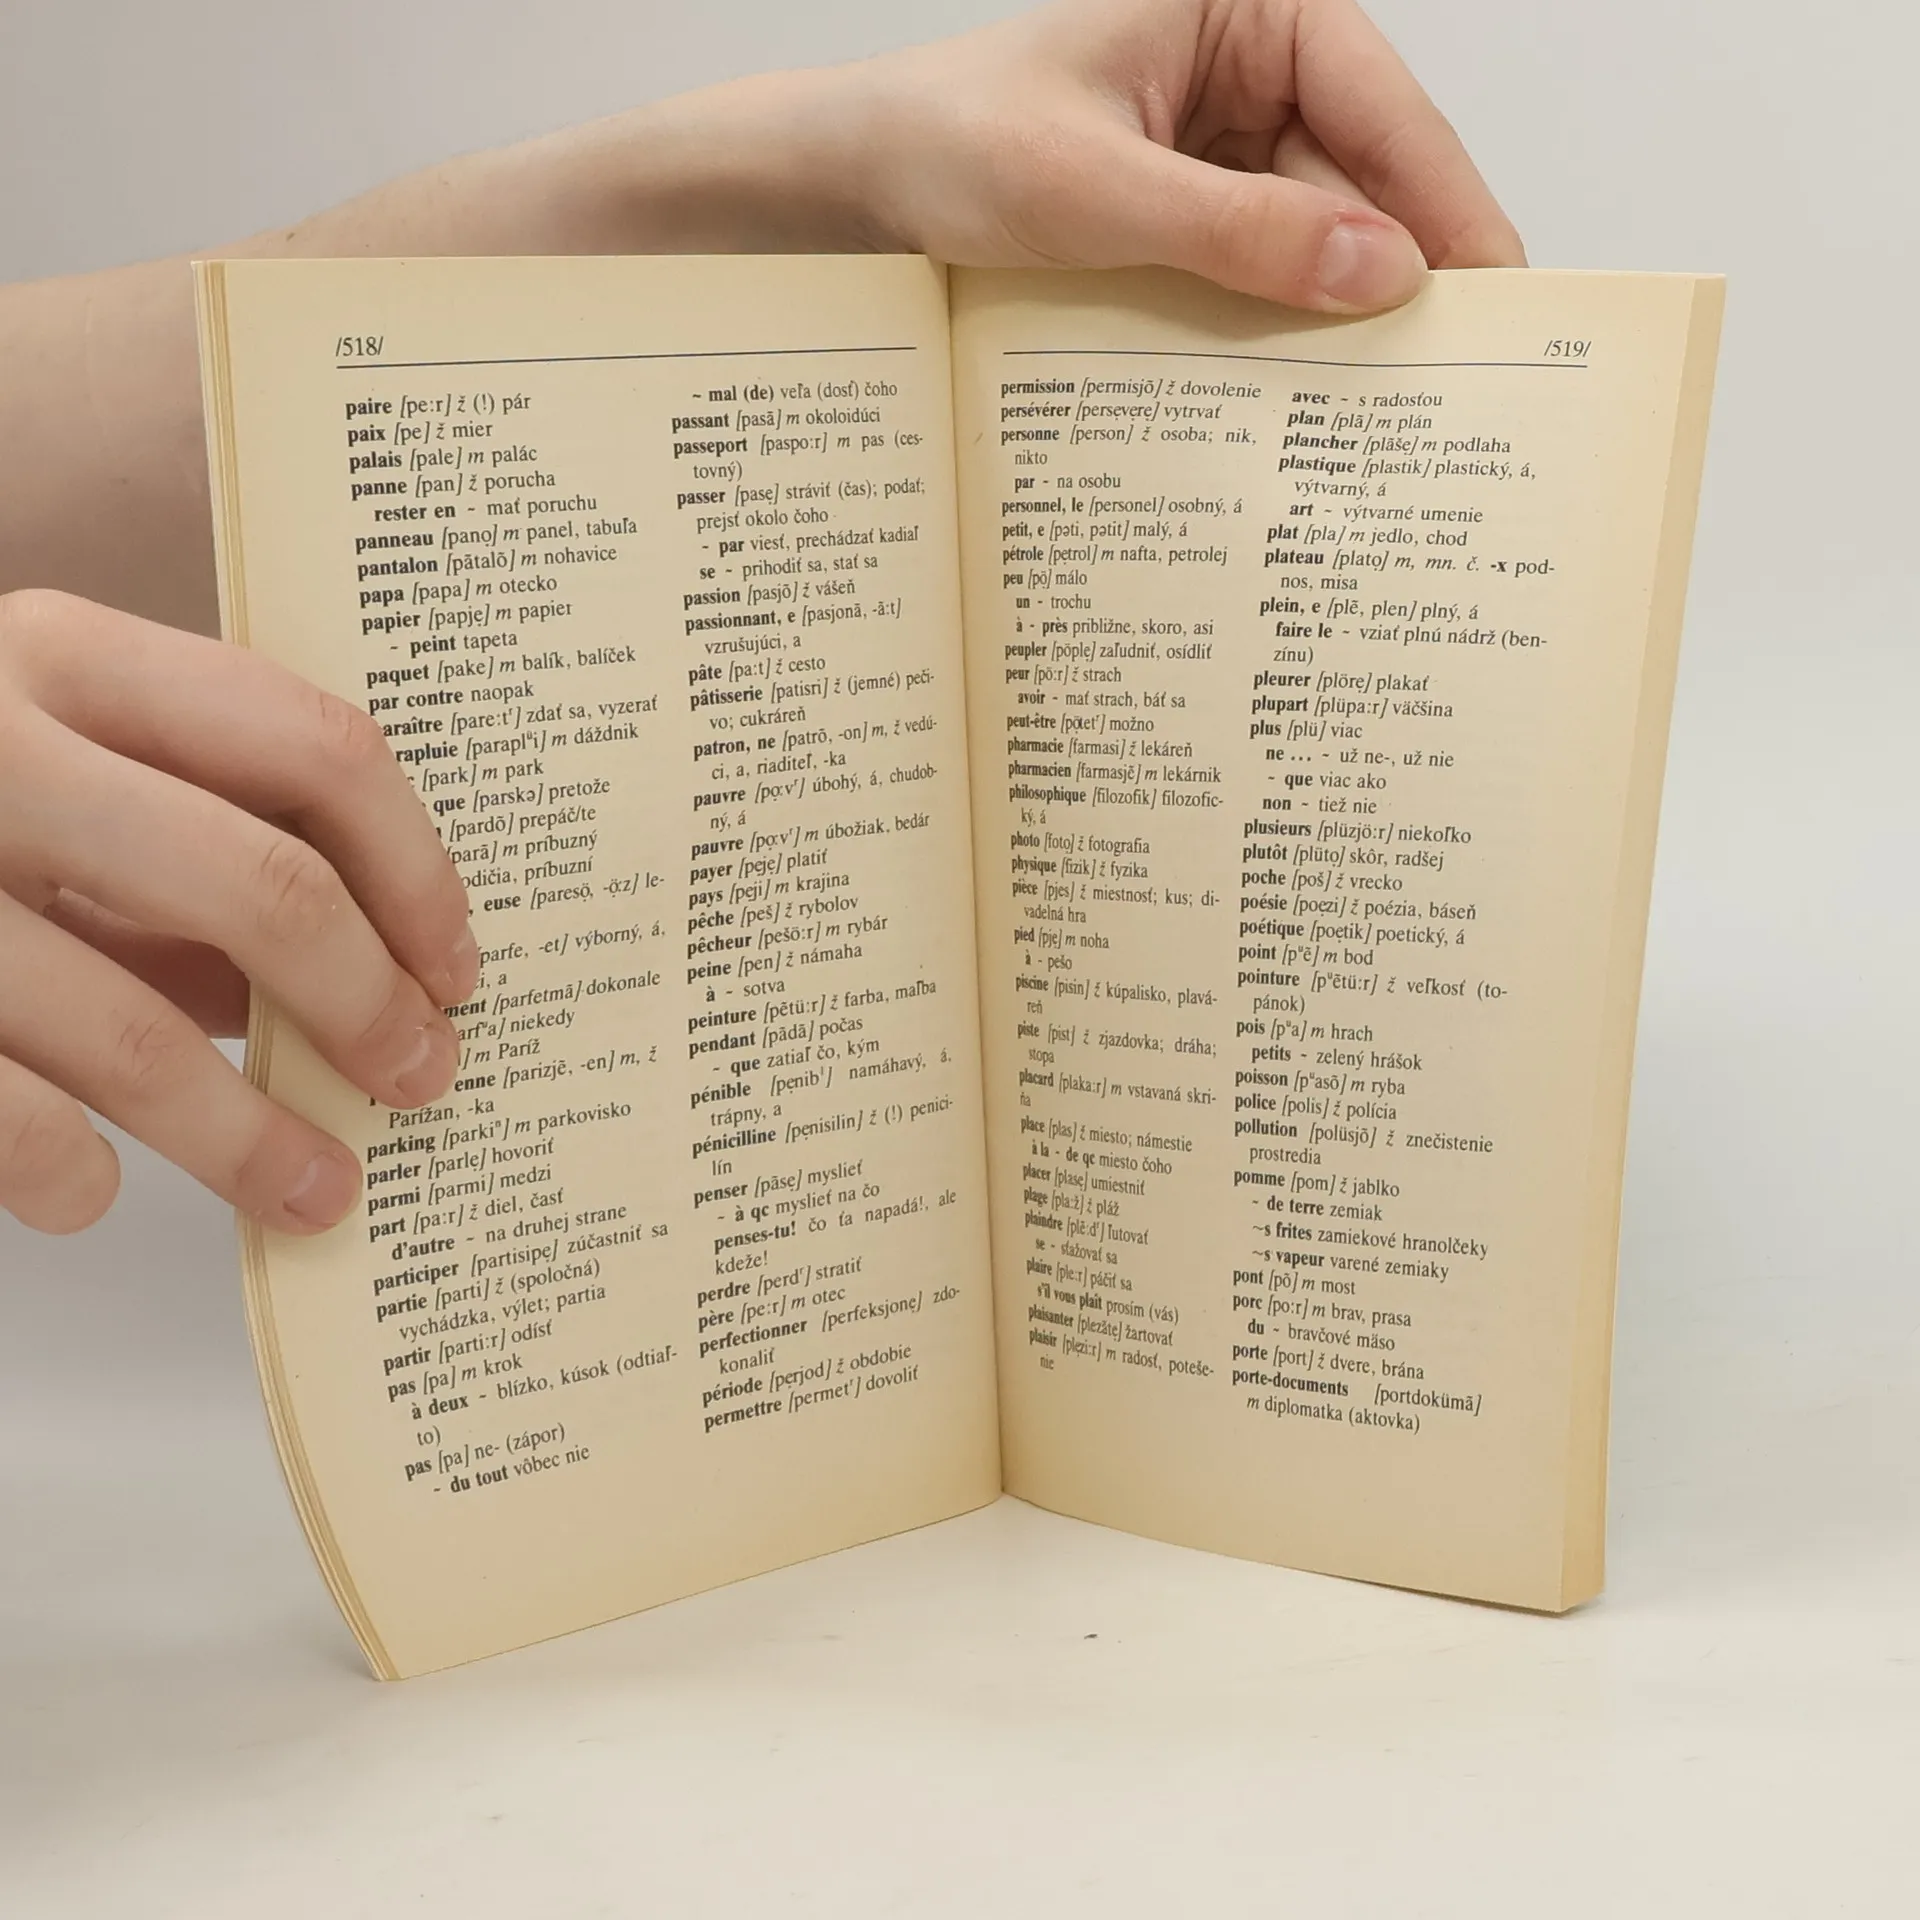 /518/
paire [pe:r] ž (!) pár
paix [pe] ž mier
palais [pale] m palác
panne [pan] ž porucha
rester en ~ mať poruchu
panneau [panọ] m panel, tabuľa
pantalon [pãtalõ] m nohavice
papa [papa] m otecko
papier [papję] m papier
~ peint tapeta
paquet [pake] m balík, balíček
par contre naopak
araître [pare:tʳ] zdať sa, vyzerať
rapluie [paraplᵘ̈i] m dáždnik
[park] m park
que [parskə] pretože
[pardõ] prepáč/te
[parã] m príbuzný
odičia, príbuzní
, euse [paresọ̈, -ọ̈:z] le-
[parfe, -et] výborný, á,
i, a
ment [parfetmã] dokonale
arfᵘa] niekedy
] m Paríž
enne [parizjẽ, -en] m, ž
Parížan, -ka
parking [parkiⁿ] m parkovisko
parler [parlẹ] hovoriť
parmi [parmi] medzi
part [pa:r] ž diel, časť
d'autre ~ na druhej strane
participer [partisipẹ] zúčastniť sa
partie [parti] ž (spoločná)
vychádzka, výlet; partia
partir [parti:r] odísť
pas [pa] m krok
à deux ~ blízko, kúsok (odtiaľ-
to)
pas [pa] ne- (zápor)
~ du tout vôbec nie
~ mal (de) veľa (dosť) čoho
passant [pasã] m okoloidúci
passeport [paspo:r] m pas (ces-
tovný)
passer [pasẹ] stráviť (čas); podať;
prejsť okolo čoho
~ par viesť, prechádzať kadiaľ
se ~ prihodiť sa, stať sa
passion [pasjõ] ž vášeň
passionnant, e [pasjonã, -ã:t]
vzrušujúci, a
pâte [pa:t] ž cesto
pâtisserie [patisri] ž (jemné) peči-
vo; cukráreň
patron, ne [patrõ, -on] m, ž vedú-
ci, a, riaditeľ, -ka
pauvre [pọ:vʳ] úbohý, á, chudob-
ný, á
pauvre [pọ:vʳ] m úbožiak, bedár
payer [pẹjẹ] platiť
pays [pẹji] m krajina
pêche [peš] ž rybolov
pêcheur [pešö:r] m rybár
peine [pen] ž námaha
à ~ sotva
peinture [pẽtü:r] ž farba, maľba
pendant [pãdã] počas
~ que zatiaľ čo, kým
pénible [pẹnibˡ] namáhavý, á,
trápny, a
pénicilline [pẹnisilin] ž (!) penici-
lín
penser [pãsẹ] myslieť
~ à qc myslieť na čo
penses-tu! čo ťa napadá!, ale
kdeže!
perdre [perdʳ] stratiť
père [pe:r] m otec
perfectionner [perfeksjonẹ] zdo-
konaliť
période [pẹrjod] ž obdobie
permettre [permetʳ] dovoliť
/519/
permission [permisjõ] ž dovolenie
persévérer [persẹvẹrẹ] vytrvať
personne [person] ž osoba; nik,
nikto
par ~ na osobu
personnel, le [personel] osobný, á
petit, e [pəti, pətit] malý, á
pétrole [pẹtrol] m nafta, petrolej
peu [pọ̈] málo
un ~ trochu
à ~ près približne, skoro, asi
peupler [pöplẹ] zaľudniť, osídliť
peur [pö:r] ž strach
avoir ~ mať strach, báť sa
peut-être [pọ̈tetʳ] možno
pharmacie [farmasi] ž lekáreň
pharmacien [farmasjẽ] m lekárnik
philosophique [filozofik] filozofic-
ký, á
photo [fotọ] ž fotografia
physique [fizik] ž fyzika
pièce [pjes] ž miestnosť; kus; di-
vadelná hra
pied [pjẹ] m noha
à ~ pešo
piscine [pisin] ž kúpalisko, plavá-
reň
piste [pist] ž zjazdovka; dráha;
stopa
placard [plaka:r] m vstavaná skri-
ňa
place [plas] ž miesto; námestie
à la ~ de qc miesto čoho
placer [plasẹ] umiestniť
plage [pla:ž] ž pláž
plaindre [plẽ:dʳ] ľutovať
se ~ sťažovať sa
plaire [ple:r] páčiť sa
s'il vous plaît prosím (vás)
plaisanter [plezãtẹ] žartovať
plaisir [plẹzi:r] m radosť, poteše-
nie
avec ~ s radosťou
plan [plã] m plán
plancher [plãšẹ] m podlaha
plastique [plastik] plastický, á,
výtvarný, á
art ~ výtvarné umenie
plat [pla] m jedlo, chod
plateau [platọ] m, mn. č. -x pod-
nos, misa
plein, e [plẽ, plen] plný, á
faire le ~ vziať plnú nádrž (ben-
zínu)
pleurer [plörẹ] plakať
plupart [plüpa:r] väčšina
plus [plü] viac
ne ... ~ už ne-, už nie
~ que viac ako
non ~ tiež nie
plusieurs [plüzjö:r] niekoľko
plutôt [plütọ] skôr, radšej
poche [poš] ž vrecko
poésie [poẹzi] ž poézia, báseň
poétique [poẹtik] poetický, á
point [pᵘẽ] m bod
pointure [pᵘẽtü:r] ž veľkosť (to-
pánok)
pois [pᵘa] m hrach
petits ~ zelený hrášok
poisson [pᵘasõ] m ryba
police [polis] ž polícia
pollution [polüsjõ] ž znečistenie
prostredia
pomme [pom] ž jablko
~ de terre zemiak
~s frites zamiekové hranolčeky
~s vapeur varené zemiaky
pont [põ] m most
porc [po:r] m brav, prasa
du ~ bravčové mäso
porte [port] ž dvere, brána
porte-documents [portdokümã]
m diplomatka (aktovka)